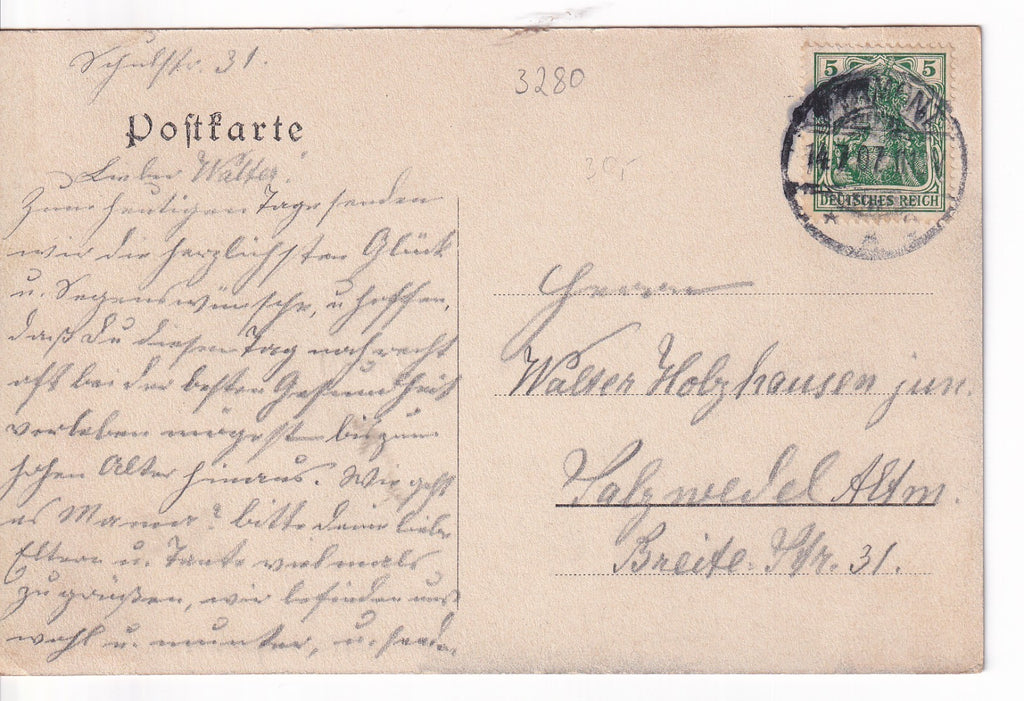 Schulstr. 31.
3280
Postkarte
5 5
14.7.07.
DEUTSCHES REICH
Lieber Walter!
Zum heutigen Tage senden
wir die herzlichsten Glück
u. Segenswünsche, u. hoffen,
daß Du diesen Tag noch recht
oft bei der besten Gesundheit
verleben mögest bis zum
hohen Alter hinaus. Wie geht
es Mama? bitte deine liebe
Eltern u. Tante vielmals
zu grüßen, wir befinden uns
wohl u. munter, u. senden
Herrn
Walter Holzhausen jun.
Salzwedel Altm.
Breite Str. 31.